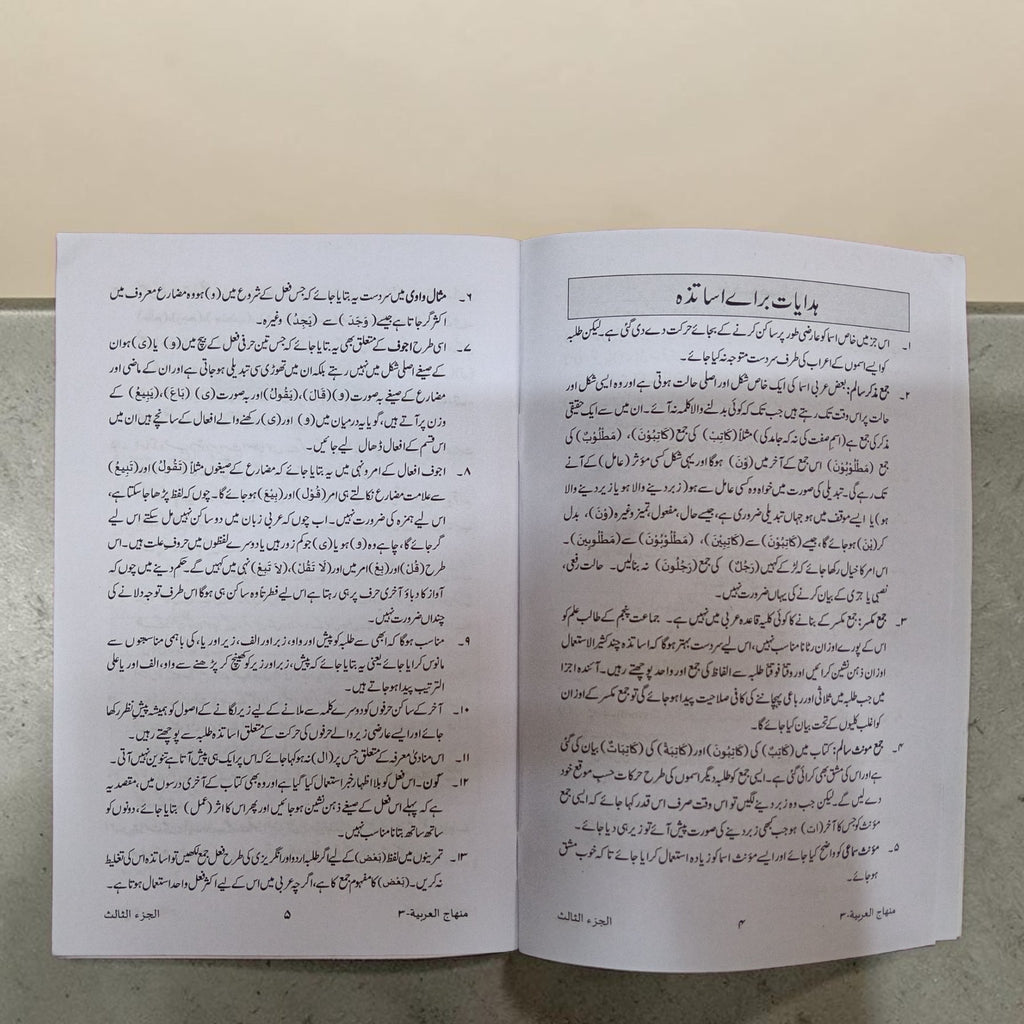 ہدایات براے اساتذہ
۱۔ اس جز میں خاص اسما کو عارضی طور پر ساکن کرنے کے بجائے حرکت دے دی گئی ہے۔ لیکن طلبہ
کو ایسے اسموں کے اعراب کی طرف سر دست متوجہ نہ کیا جائے۔
۲۔ جمع مذکر سالم: بعض عربی اسما کی ایک خاص شکل اور اصلی حالت ہوتی ہے اور وہ ایسی شکل اور
حالت پر اس وقت تک رہتے ہیں جب تک کہ کوئی بدلنے والا کلمہ نہ آئے۔ ان میں سے ایک حقیقی
مذکر کی جمع ہے (اسم صفت کی نہ کہ جامد کی) مثلاً (كَاتِبٌ) کی جمع (كَاتِبُوْنَ)، (مَطْلُوْبٌ) کی
جمع (مَطْلُوْبُوْنَ) اس جمع کے آخر میں (وْنَ) ہوگا اور یہی شکل کسی مؤثر (عامل) کے آنے
تک رہے گی۔ تبدیلی کی صورت میں خواہ وہ کسی عامل سے ہو (زبر دینے والا ہو یا زیر دینے والا
ہو) یا ایسے موقف میں ہو جہاں تبدیلی ضروری ہے، جیسے حال، مفعول، تمیز وغیرہ (وْنَ)، بدل
کر (يْنَ) ہو جائے گا، جیسے (كَاتِبُوْنَ) سے (كَاتِبِيْنَ)، (مَطْلُوْبُوْنَ) سے (مَطْلُوبِينَ)۔
اس امر کا خیال رکھا جائے کہ لڑکے کہیں (رَجُلٌ) کی جمع (رَجُلُونَ) نہ بنالیں۔ حالت رفعی،
نصبی یا جزی کے بیان کرنے کی یہاں ضرورت نہیں۔
۳۔ جمع مکسر: جمع مکسر کے بنانے کا کوئی کلیہ قاعدہ عربی میں نہیں ہے۔ جماعت پنجم کے طالب علم کو
اس کے پورے اوزان رٹانا مناسب نہیں، اس لیے سر دست بہتر ہوگا کہ اساتذہ چند کثیر الاستعمال
اوزان ذہن نشین کرائیں اور وقتاً فوقتاً طلبہ سے الفاظ کی جمع اور واحد پوچھتے رہیں۔ آئندہ اجزا
میں جب طلبہ میں ثلاثی اور رباعی پہچاننے کی کافی صلاحیت پیدا ہو جائے گی تو جمع مکسر کے اوزان
کو اغلب کلیوں کے تحت بیان کیا جائے گا۔
۴۔ جمع مونث سالم: کتاب میں (كَاتِبٌ) کی (كَاتِبُوْنَ) اور (كَاتِبَةٌ) کی (كَاتِبَاتٌ) بیان کی گئی
ہے اور اس کی مشق بھی کرائی گئی ہے۔ ایسی جمع کو طلبہ دیگر اسموں کی طرح حرکات حسب موقع خود
دے لیں گے۔ لیکن جب وہ زبر دینے لگیں تو اس وقت صرف اس قدر کہا جائے کہ ایسی جمع
مؤنث کو جس کا آخر (ات) ہو جب کبھی زبر دینے کی صورت پیش آئے تو زیر ہی دیا جائے۔
۵۔ مؤنث سماعی کو واضح کیا جائے اور ایسے مؤنث اسما کو زیادہ استعمال کرایا جائے تاکہ خوب مشق
ہو جائے۔
منهاج العربية-۳ ۴ الجزء الثالث
۶۔ مثال واوی میں سر دست یہ بتایا جائے کہ جس فعل کے شروع میں (و) ہو وہ مضارع معروف میں
اکثر گر جاتا ہے جیسے (وَجَدَ) سے (يَجِدُ) وغیرہ۔
۷۔ اسی طرح اجوف کے متعلق بھی یہ بتایا جائے کہ جس تین حرفی فعل کے بیچ میں (و) یا (ی) ہو ان
کے صیغے اصلی شکل میں نہیں رہتے بلکہ ان میں تھوڑی سی تبدیلی ہو جاتی ہے اور ان کے ماضی اور
مضارع کے صیغے بہ صورت (و) (قَالَ)، (يَقُوْلُ) اور بہ صورت (ی) (بَاعَ)، (يَبِيْعُ) کے
وزن پر آتے ہیں، گویا یہ درمیان میں (و) اور (ی) رکھنے والے افعال کے سانچے ہیں ان میں
اس قسم کے افعال ڈھال لیے جائیں۔
۸۔ اجوف افعال کے امر و نہی میں یہ بتایا جائے کہ مضارع کے صیغوں مثلاً (تَقُوْلُ) اور (تَبِيعُ)
سے علامت مضارع نکالتے ہی امر (قُوْل) اور (بِيْعُ) ہو جائے گا۔ چوں کہ لفظ پڑھا جا سکتا ہے،
اس لیے ہمزہ کی ضرورت نہیں۔ اب چوں کہ عربی زبان میں دو ساکن نہیں مل سکتے اس لیے
گر جائے گا، چاہے وہ (و) ہو یا (ی) جو کم زور ہیں یا دوسرے لفظوں میں حروف علت ہیں۔ اس
طرح (قُلْ) اور (بِعْ) امر میں اور (لَا تَقُلْ)، (لَا تَبِعْ) نہی میں کہیں گے۔ حکم دینے میں چوں کہ
آواز کا دباؤ آخری حرف پر ہی رہتا ہے اس لیے فطرتاً وہ ساکن ہی ہوگا اس طرف توجہ دلانے کی
چنداں ضرورت نہیں۔
۹۔ مناسب ہوگا کہ ابھی سے طلبہ کو پیش اور واو، زبر اور الف، زیر اور یا، کی باہمی مناسبتوں سے
مانوس کرایا جائے یعنی یہ بتایا جائے کہ پیش، زبر اور زیر کو کھینچ کر پڑھنے سے واو، الف اور یا علی
الترتیب پیدا ہو جاتے ہیں۔
۱۰۔ آخر کے ساکن حرفوں کو دوسرے کلمہ سے ملانے کے لیے زیر لگانے کے اصول کو ہمیشہ پیش نظر رکھا
جائے اور ایسے عارضی زیر والے حرفوں کی حرکت کے متعلق اساتذہ طلبہ سے پوچھتے رہیں۔
۱۱۔ اس منادیٰ معرفہ کے متعلق جس پر (ال) نہ ہو کہا جائے کہ اس پر ایک ہی پیش آتا ہے تنوین نہیں آتی۔
۱۲۔ کَون۔ اس فعل کو بلا اظہار خبر استعمال کیا گیا ہے اور وہ بھی کتاب کے آخری درسوں میں، مقصد یہ
ہے کہ پہلے اس فعل کے صیغے ذہن نشین ہو جائیں اور پھر اس کا اثر (عمل) بتایا جائے، دونوں کو
ساتھ ساتھ بتانا مناسب نہیں۔
۱۳۔ تمرینوں میں لفظ (بَعْض) کے لیے اگر طلبہ اردو اور انگریزی کی طرح فعل جمع لکھیں تو اساتذہ اس کی تغلیط
نہ کریں۔ (بَعْض) کا مفہوم جمع کا ہے، اگرچہ عربی میں اس کے لیے اکثر فعل واحد استعمال ہوتا ہے۔
منهاج العربية-۳ ۵ الجزء الثالث